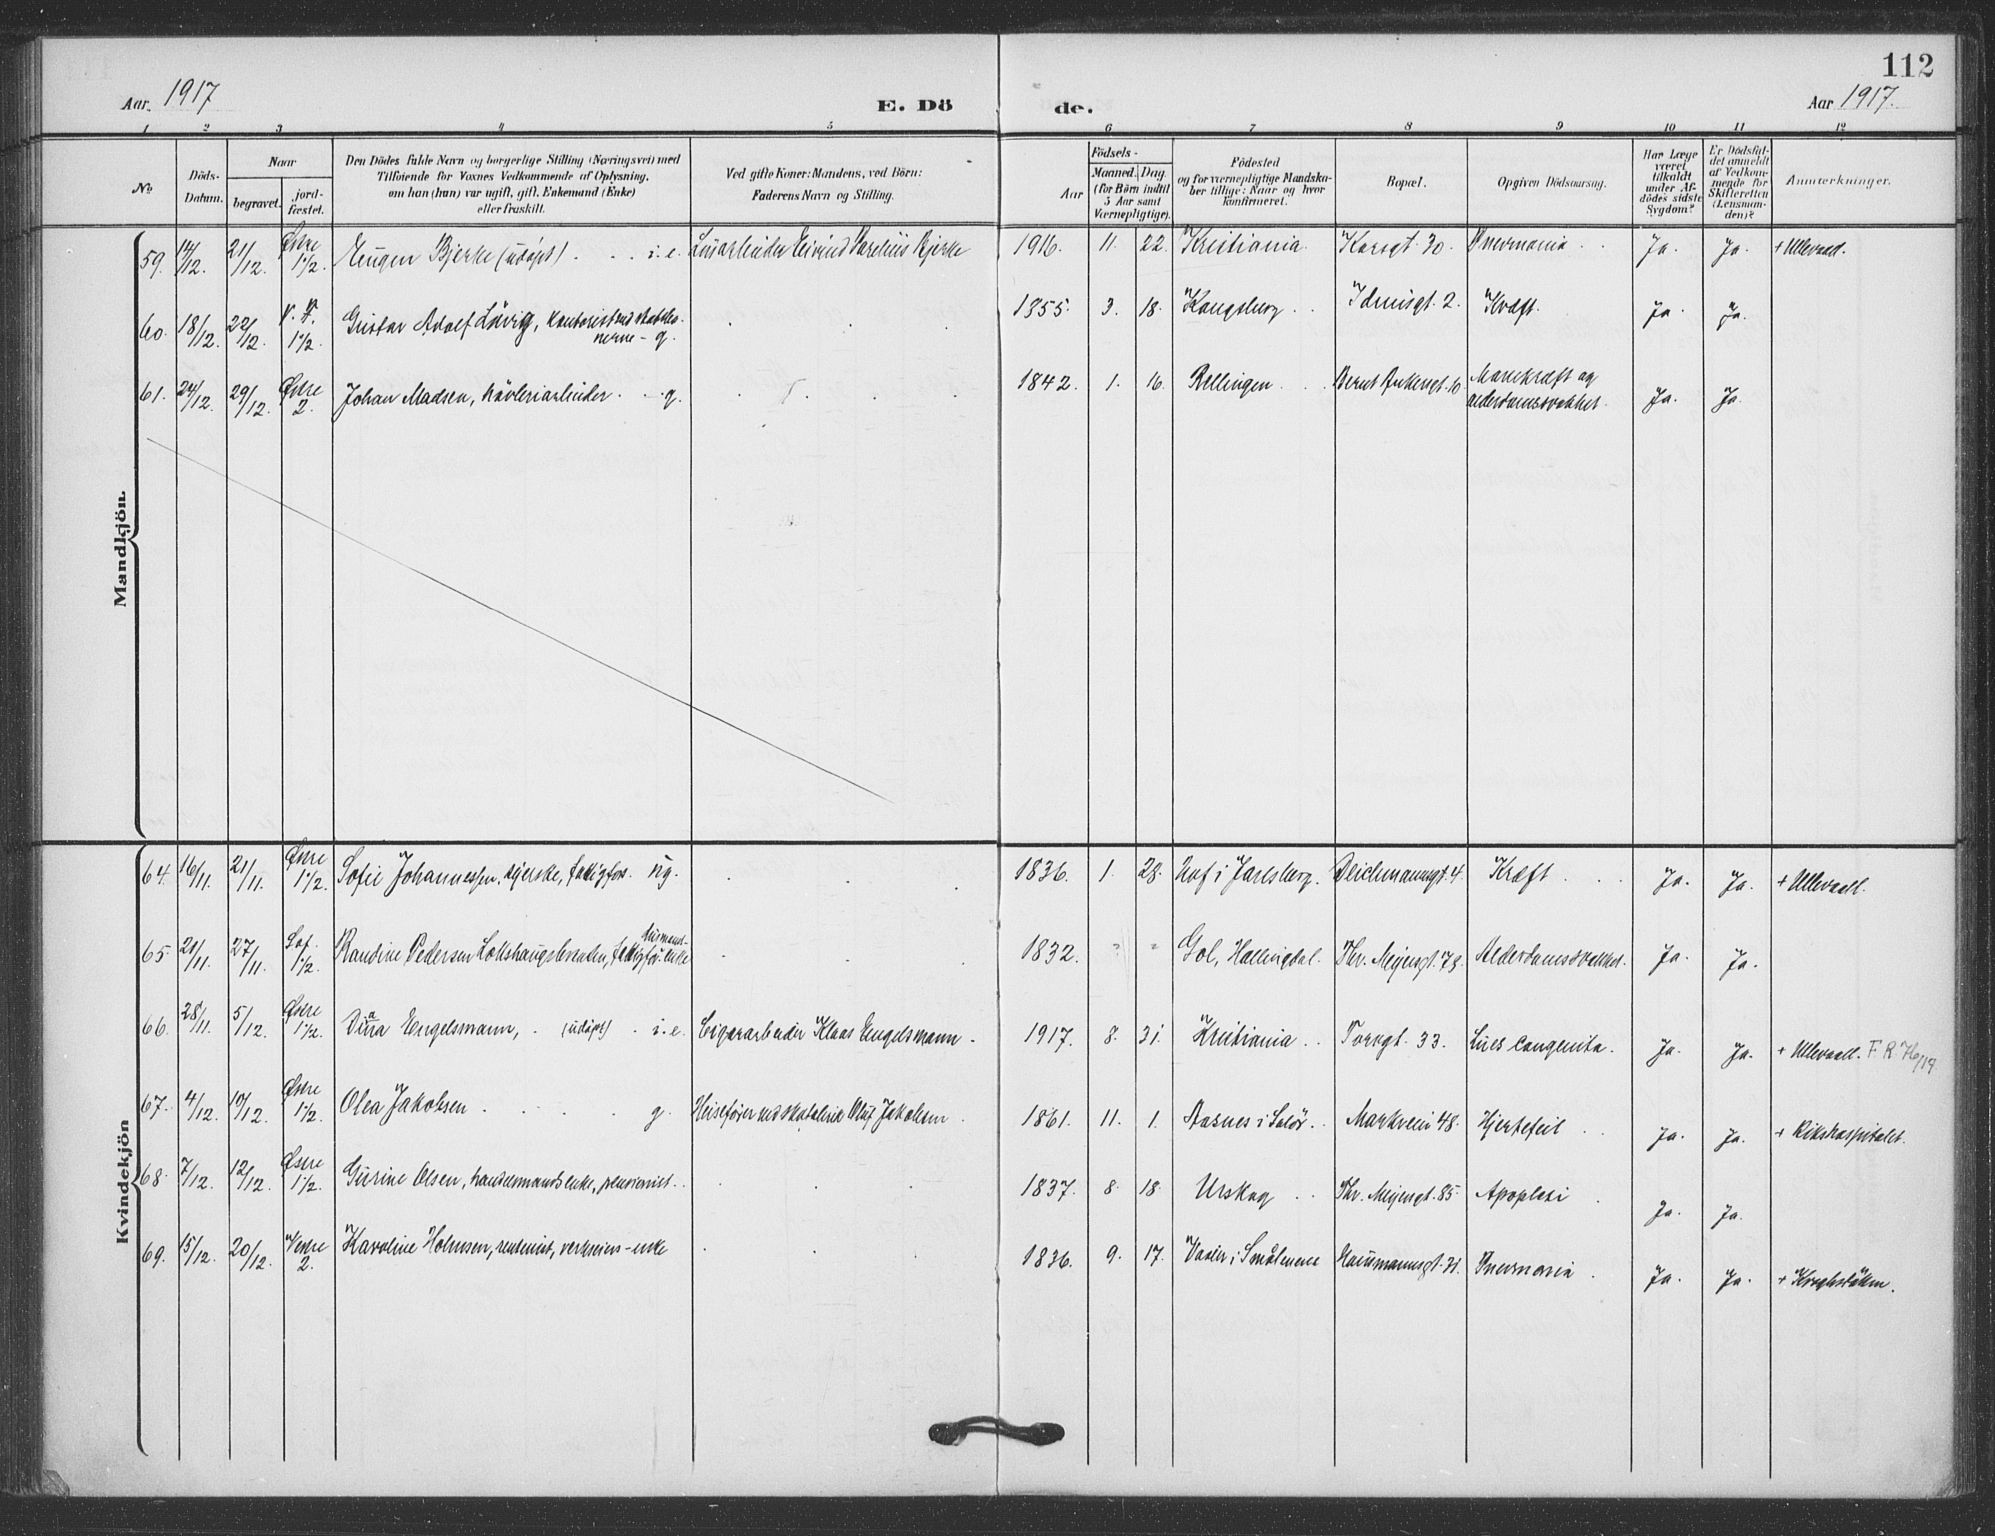 112
Aar. 1917
E. Dö de.
Aar 1917.
1 2 3 4 5 6 7 8 9 10 11 12
No.
Döds-Datum.
Naar
begravet.
jord-fæstet.
Den Dödes fulde Navn og borgerlige Stilling (Næringsvei) med
Tilföiende for Voxnes Vedkommende af Oplysning,
om han (hun) var ugift, gift, Enkemand (Enke)
eller fraskilt.
Ved gifte Koner: Mandens, ved Börn:
Faderens Navn og Stilling.
Födsels-
Aar
Maaned. Dag.
(for Börn indtil
5 Aar samt
Værnepligtige).
Födested
og for værnepligtige Mandska-
ber tillige: Naar og hvor
konfirmeret.
Bopæl.
Opgiven Dödsaarsag.
Har Læge
været
tilkaldt
under Af-
dödes sidste
Sygdom?
Er Dödsfal-
det anmeldt
af Vedkom-
mende for
Skifteretten
(Lensman-
den)?
Anmærkninger.
Mandkjön.
59. 14/12. 21/12. Østre 1 1/2. Eugen Bjerke (udöpt) . . . i. e. Løsarbeider Eivind Bjerke 1916. 11. 22. Kristiania. Korsgt. 30. Pnevmonia . . Ja. Ja. + Ullevaal.
60. 18/12. 22/12. V. F. 1 1/2. Gustav Adolf Lövig, kontorist ved - g. 1855. 3. 18. Kongsberg . . Idunsgt. 2. Kræft. Ja. Ja.
61. 24/12. 29/12. Østre 2. Johan Madsen, hövleriarbeider . - g. 1842. 1. 16. Rellingen . . Bernt Ankersgt. 10 Mavekræft og
alderdomssvakhet. Ja. Ja.
Kvindekjön
64. 16/11. 21/11. Østre 1 1/2. Sofie Johannessen, syerske, fattigfors. ug. 1836. 1. 28. Hof i Jarlsberg. Deichmannsgt. 4. Kræft . . . Ja. Ja. + Ullevaal.
65. 21/11. 27/11. Sof. 1 1/2. Randine Pedersen 1832. " " Gol, Hallingdal. Thv. Meyersgt. 73. Alderdomssvakhet. Ja. Ja.
66. 28/11. 5/12. Østre 1 1/2. Dina Engelsmann, . (udöpt) . i. e. Cigararbeider Klaas Engelsmann . 1917. 8. 31. Kristiania . . Torvgt. 33. Lues congenita. Ja. Ja. + Ullevaal. F. R.
67. 4/12. 10/12. Østre 1 1/2. Olea Jakobsen . . . . . g. Heisefører Oluf Jakobsen . 1861. 11. 1. Aasnes i Solör. . Markvein 48. Hjertefeil . . Ja. Ja. + Rikshospitalet.
68. 7/12. 12/12. Østre 1 1/2. Gurine Olsen, handelsmandsenke, pensionist. . 1837. 8. 18. Urskog . . Thv. Meyersgt. 85. Apoplexi . Ja. Ja.
69. 15/12. 20/12. Vestre 2. Karoline Holmsen, rentenist, verkseiers - enke 1836. 9. 17. Vaaler i Smålenene Hausmannsgt. 31. Pnevmonia . Ja. Ja. + Krohgstötten.